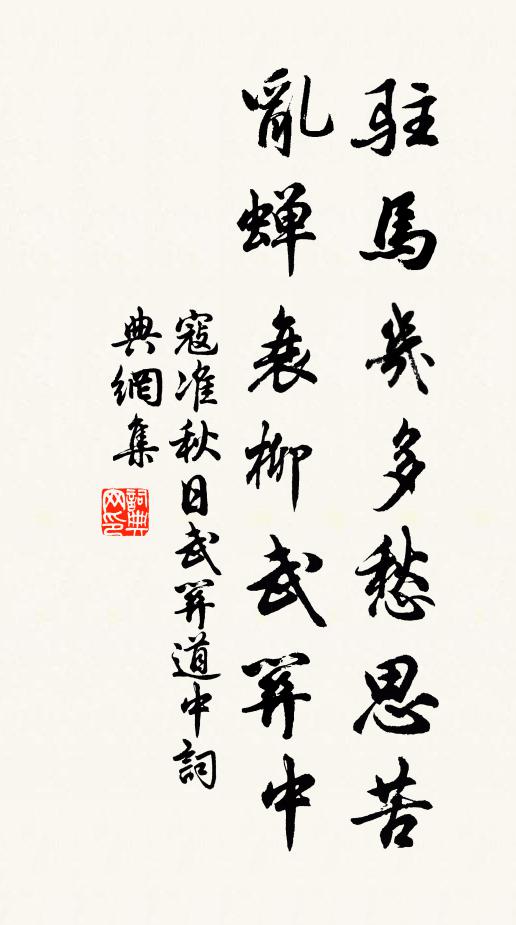 駐馬幾多愁思苦
亂蟬衰柳武關中
寇准秋日武關道中詞
典網集
詞典網印